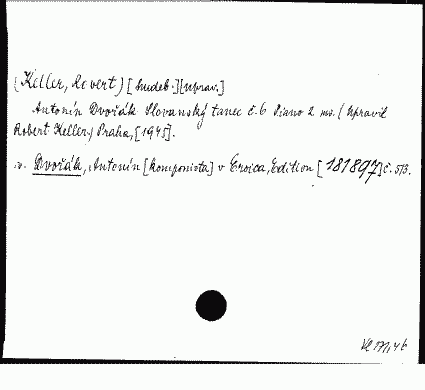 (Keller, Robert) [hudeb.][uprav.]
Antonín Dvořák Slovanský tanec č. 6 Piano 2 ms. (Upravil
Robert Keller) Praha, [1945].
v. Dvořák, Antonín [komponista] v Eroica, Edition [181897] č. 513.